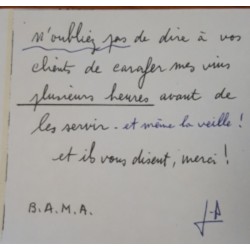 n'oubliez pas de dire à vos
clients de carafer mes vins
plusieurs heures avant de
les servir - et même la veille !
et ils vous disent, merci !
B.A.M.A.
J-A